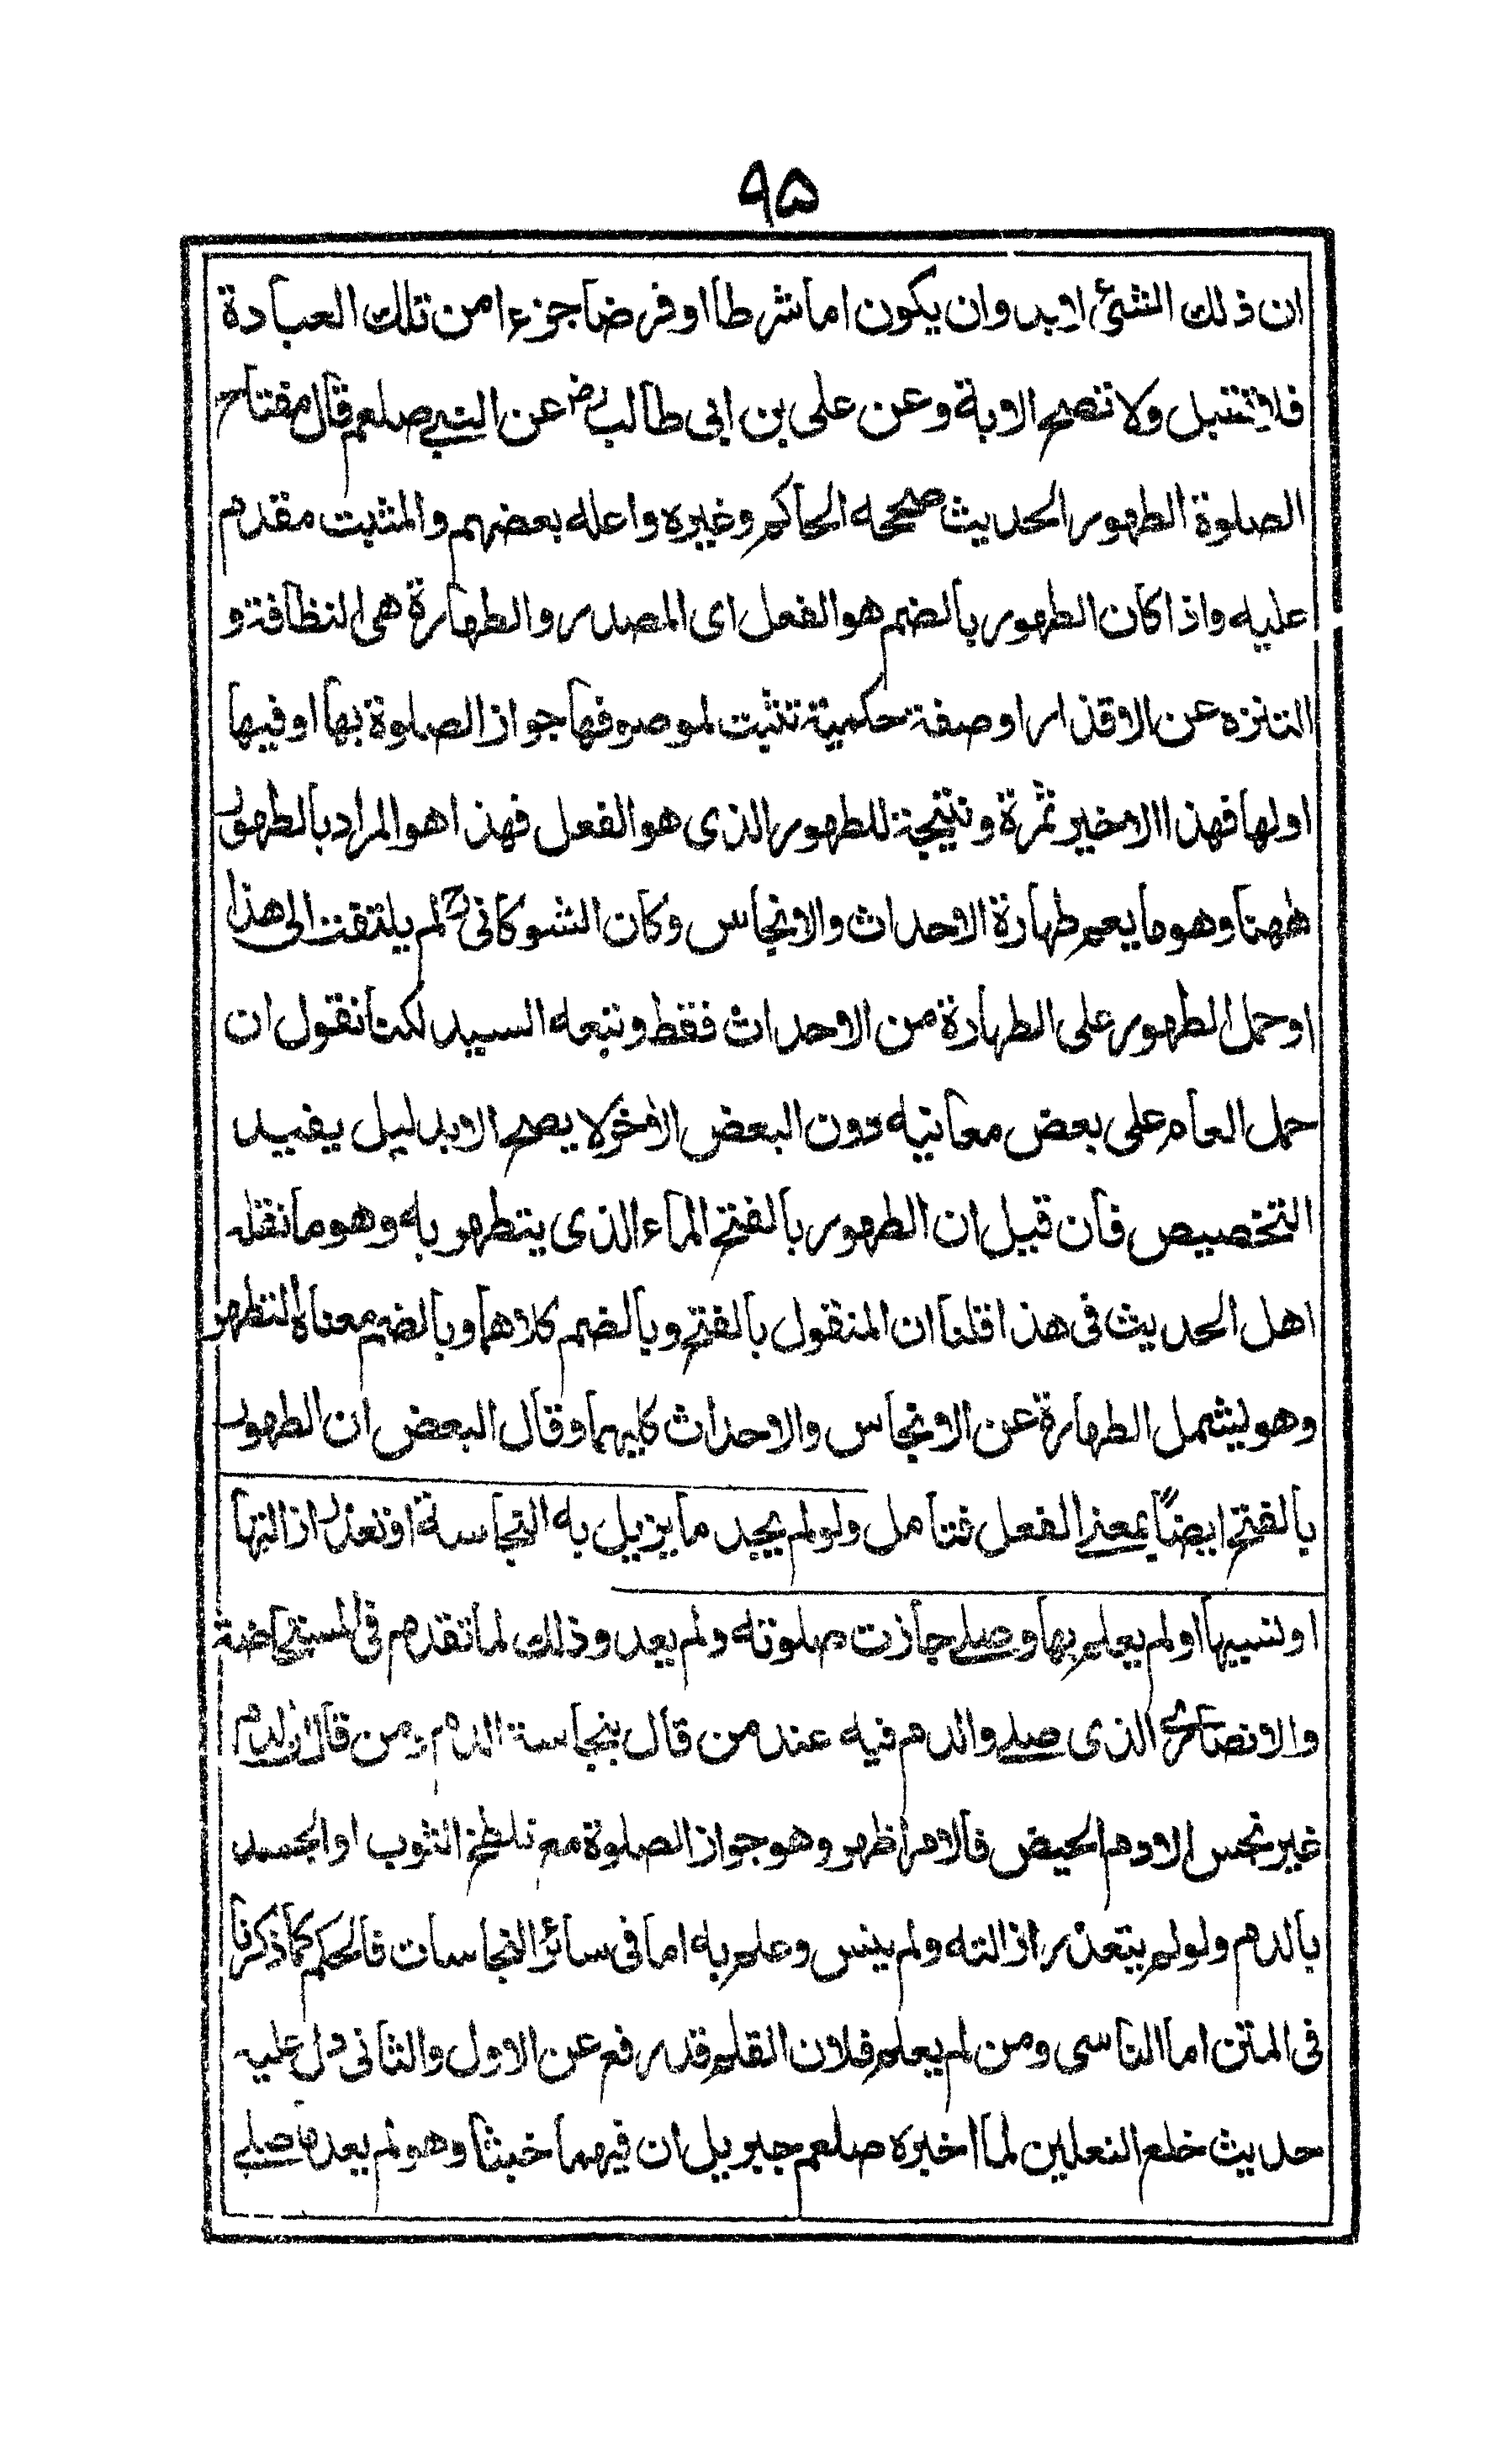 ٩٥
ان ذلك الشئ لابد وان يكون اما شرطا او فرضا جزءا من تلك العبادة
فلا تقبل ولا تصح الا به وعن على بن ابى طالب رض عن النبى صلعم قال مفتاح
الصلوة الطهور الحديث صححه الحاكم وغيره واعله بعضهم والمثبت مقدم
عليه واذا كان الطهور بالضم هو الفعل اى المصدر والطهارة هى النظافة و
التنزه عن الاقذار او صفة حكمية تثبت لموصوفها جواز الصلوة بها او فيها
او لها فهذا الاخير ثمرة ونتيجة للطهور الذى هو الفعل فهذا هو المراد بالطهور
ههنا وهو ما يعم طهارة الاحداث والانجاس وكان الشوكانى رح لم يلتفت الى هذا
او حمل الطهور على الطهارة من الاحداث فقط وتبعه السيد لكنا نقول ان
حمل العام على بعض معانيه دون البعض الاخر لا يصح الا بدليل يفيد
التخصيص فان قيل ان الطهور بالفتح الماء الذى يتطهر به وهو ما نقله
اهل الحديث فى هذا قلنا ان المنقول بالفتح وبالضم كلاهما وبالضم معناه التطهر
وهو ليشمل الطهارة عن الانجاس والاحداث كليهما وقال البعض ان الطهور
بالفتح ايضًا بمعنى الفعل فتامل ولو لم يجد ما يزيل به النجاسة او تعذر ازالتها
او نسيها او لم يعلم بها وصلى جازت صلوته ولم يعد وذلك لما تقدم فى المستحاضة
والانصارى الذى صلى والدم فيه عند من قال بنجاسة الدم ومن قال ان الدم
غير نجس الا دم الحيض فالامر اظهر وهو جواز الصلوة مع تلطخ الثوب او الجسد
بالدم ولو لم يتعذر ازالته ولم ينس وعلم به اما فى سائر النجاسات فالحكم كما ذكرنا
فى المتن اما الناسى ومن لم يعلم فلان القلم قد رفع عن الاول والثانى دل عليه
حديث خلع النعلين لما اخبره صلعم جبريل ان فيهما خبثا وهو لم يعد ما صلى